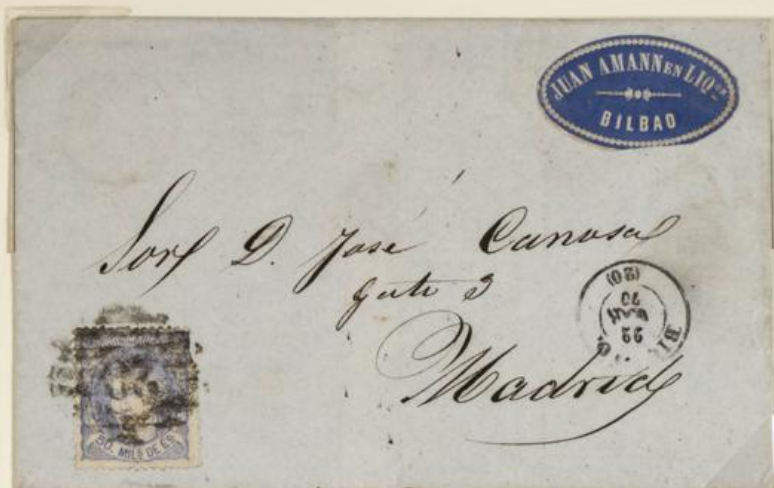 JUAN AMANN EN LIQON
BILBAO
Sor D. José Canosa
Madrid
(20)
22
70
50. MILS DE ES